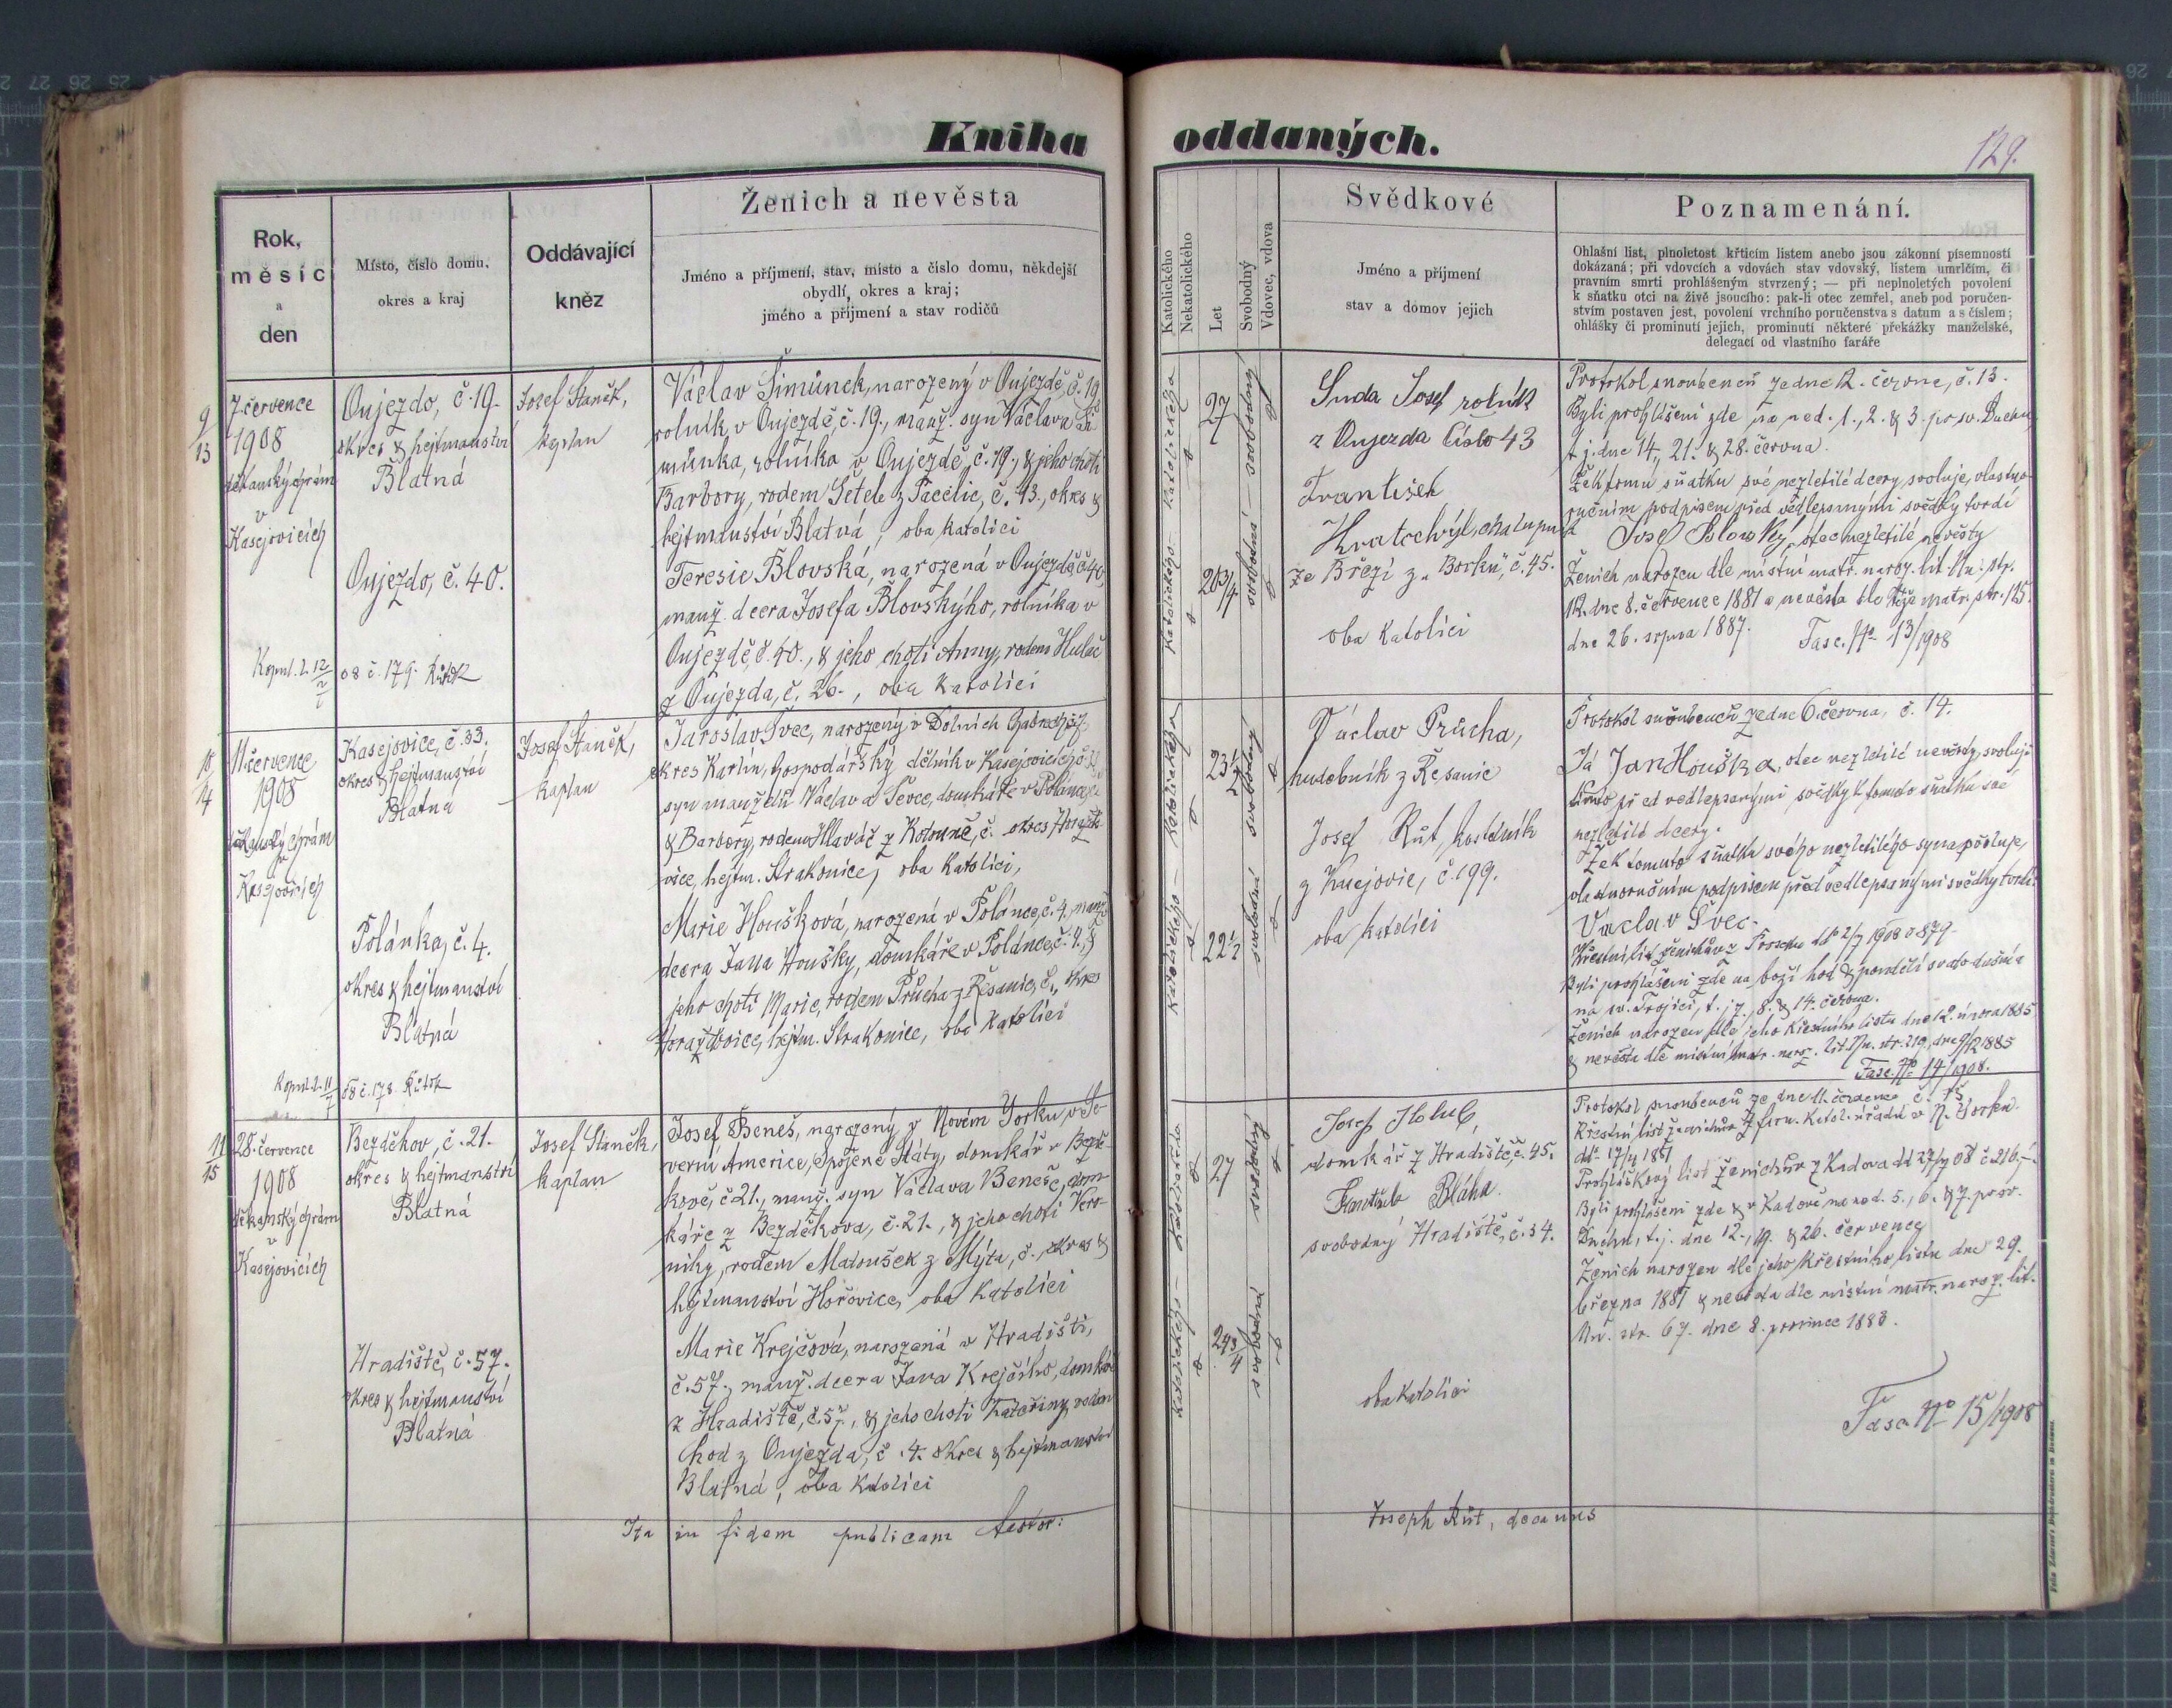 Kniha oddaných.
129.
Rok,
měsíc
a
den
Místo, číslo domu,
okres a kraj
Oddávající
kněz
Ženich a nevěsta
Jméno a příjmení, stav, místo a číslo domu, někdejší
obydlí, okres a kraj;
jméno a příjmení a stav rodičů
Katolického
Nekatolického
Let
Svobodný
Vdovec, vdova
Svědkové
Jméno a příjmení
stav a domov jejich
Poznamenání.
Ohlašní list, plnoletost křticím listem anebo jsou zákonní písemností
dokázaná; při vdovcích a vdovách stav vdovský, listem umrlčím, či
pravním smrti prohlášeným stvrzený; — při neplnoletých povolení
k sňatku otci na živě jsoucího: pak-li otec zemřel, aneb pod poručen-
stvím postaven jest, povolení vrchního poručenstva s datum a s číslem;
ohlášky či prominutí jejich, prominutí některé překážky manželské,
delegací od vlastního faráře
9
13
7. července
1908
děkanský chrám
v
Kasejovicích
Oujezdo, č. 19.
okres & hejtmanství
Blatná
Oujezdo, č. 40.
08 č. 179.
Josef Staněk,
kaplan
Václav Šimůnek, narozený v Oujezdě, č. 19,
rolník v Oujezdě, č. 19., manž. syn Václava Ši
můnka, rolníka v Oujezdě, č. 19., & jeho choti
Barbory, rodem Šetele z Pačelic, č. 13., okres &
hejtmanství Blatná, oba katolíci
Teresie Blovská, narozená v Oujezdě, č. 40,
manž. dcera Josefa Blovskýho, rolníka v
Oujezdě, č. 40., & jeho choti Anny, rodem Hulač
z Oujezda, č. 26., oba katolíci
katolického — katolického
27
20 3/4
svobodná — svobodný
Suda Josef rolník
z Oujezda číslo 43
František
Kratochvýl, chalupník
ze Březí z „Borků", č. 45.
oba katolíci
Protokol snoubenců ze dne 12. června, č. 13.
Byli prohlášeni zde na ned. 1., 2. & 3. po sv. Duchu
t. j. dne 14., 21. & 28. června.
Že k tomu sňatku své nezletilé dcery svoluje, vlastno-
ručním podpisem před vedlepsanými svědky tvrdí
Josef Blovský, otec nezletilé nevěsty
Ženich narozen dle místní matr. naroz. lit. str.
112. dne 8. července 1881 a nevěsta dle téže matr. str. 125.
dne 26. srpna 1887. Fasc. No 13/1908
10
14
11. července
1908
děkanský chrám
v
Kasejovicích
Kasejovice, č. 33.
okres & hejtmanství
Blatná
Polánka, č. 4.
okres & hejtmanství
Blatná
08 č. 178.
Josef Staněk,
kaplan
Jaroslav Švec, narozený v Dolních
okres Karlín, hospodářský dělník v Kasejovicích, č. 33
syn manželů Václava Ševce, domkáře v Polánce,
& Barbory, rodem Hlaváč z Kotouně, č. okres Horažďo-
vice, hejtm. Strakonice, oba katolíci,
Marie Houšková, narozená v Polánce, č. 4., manž.
dcera Jana Houšky, domkáře v Polánce, č. 4., &
jeho choti Marie, rodem Průcha z Řesanic, č. , okres
Horažďovice, hejtm. Strakonice, oba katolíci
katolického — katolického
23
22 1/2
svobodná svobodný
Václav Průcha,
hudebník z Řesanic
Josef Rüt, kostelník
z Kasejovic, č. 199.
oba katolíci
Protokol snoubenců ze dne 6. června, č. 14.
Já Jan Houška, otec nezletilé nevěsty, svoluji
tímto před vedlepsanými svědky k tomuto sňatku své
nezletilé dcery.
Že k tomuto sňatku svého nezletilého syna svoluje,
vlastnoručním podpisem před vedlepsanými svědky tvrdí:
Václav Švec
Křestní list ženichův z ddo 2/7 1908 č. 879.
Byli prohlášeni zde na boží hod & pondělí svatodušní a
na sv. Trojici, t. j. 7., 8. & 14. června.
Ženich narozen dle jeho křestního listu dne 12. února 1885
& nevěsta dle místní matr. naroz. lit. str. 210, dne 9/12 1885
Fasc. No 14/1908.
11
15
28. července
1908
děkanský chrám
v
Kasejovicích
Bezděkov, č. 21.
okres & hejtmanství
Blatná
Hradiště, č. 57.
okres & hejtmanství
Blatná
Josef Staněk,
kaplan
Josef Beneš, narozený v Novém Yorku, v Se-
verní Americe, Spojené Státy, domkář v Bezdě-
kově, č. 21., manž. syn Václava Beneše, dom-
káře z Bezděkova, č. 21., & jeho choti Vero-
niky, rodem Matoušek z Mýta, č. okres &
hejtmanství Hořovice, oba katolíci
Marie Krejčová, narozená v Hradišti,
č. 57., manž. dcera Jana Krejčího, domkáře
z Hradiště, č. 57., & jeho choti Kateřiny, rodem
Chod z Oujezda, č. 4. okres & hejtmanství
Blatná, oba katolíci
katolického — katolického
27
24 3/4
svobodná svobodný
Josef Holub,
domkář z Hradiště, č. 45.
František Bláha
svobodný Hradiště, č. 34.
oba katolíci
Protokol snoubenců ze dne 11. července č. 15
Křestní list ženichův z farn. katol. úřadu v N. Yorku
ddo 17/4 1881
Prohláškový list ženichův z Kadova dd 27/7 08 č. 216.
Byli prohlášeni zde & v Kadově na ned. 5., 6. & 7. po sv.
Duchu, t. j. dne 12., 19. & 26. července
Ženich narozen dle jeho křestního listu dne 29.
března 1881 & nevěsta dle místní matr. naroz. lit.
str. 67. dne 8. prosince 1883.
Fasc. No 15/1908
Ita in fidem publicam testor:
Joseph Rüt, decanus